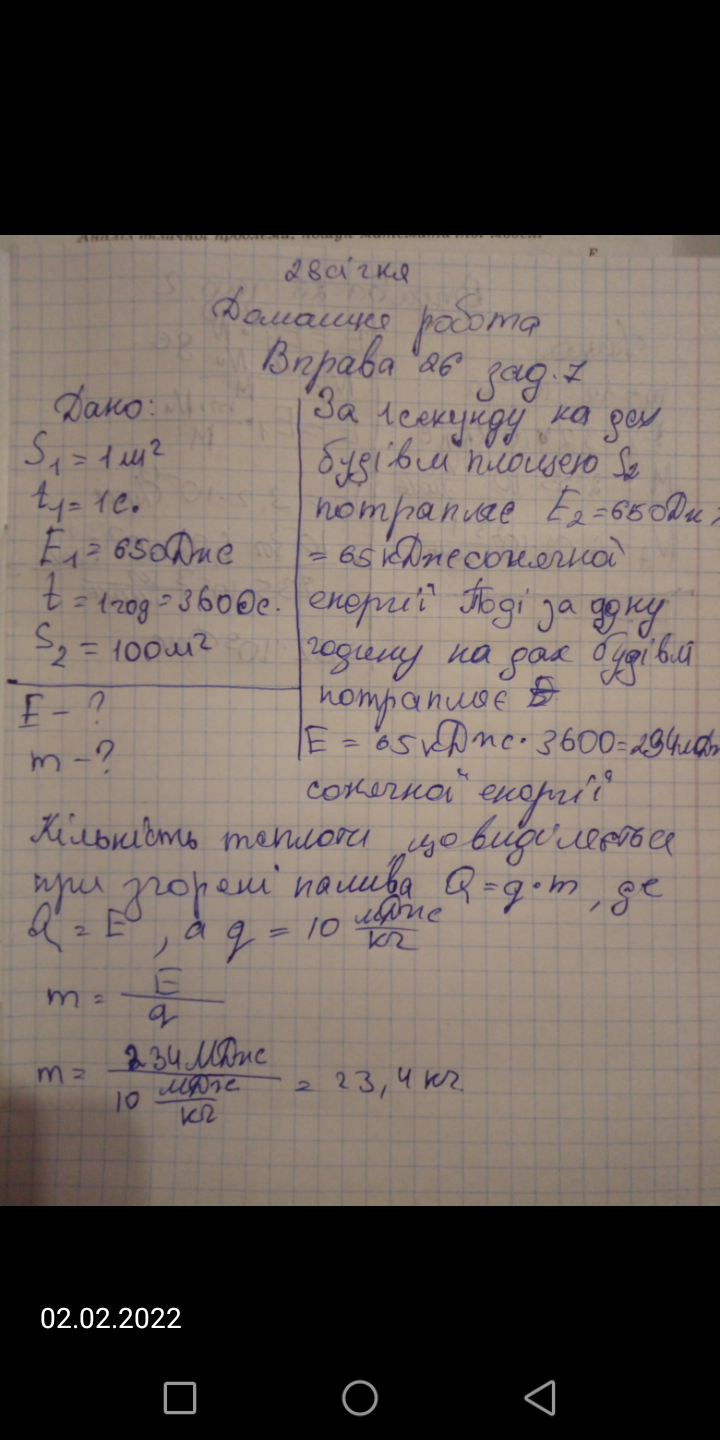 28 січня
Домашнє робота
Вправа 26 зад. 7
Дано:
S₁ = 1 м²
t₁ = 1 с.
E₁ = 650 Дж
t = 1 год = 3600 с.
S₂ = 100 м²
E - ?
m - ?
За 1 секунду на дах
будівлі площею S₂
потрапляє E₂ = 650 Дж
= 65 кДж сонячної
енергії Тоді за одну
годину на дах будівлі
потрапляє
E = 65 кДж · 3600 = 234 МДж
сонячної енергії
Кількість теплоти, що виділяється
при згорені палива Q = q · m, де
Q = E, а q = 10 МДж/кг
m = E/q
m = 234 МДж / 10 МДж/кг = 23,4 кг.
02.02.2022